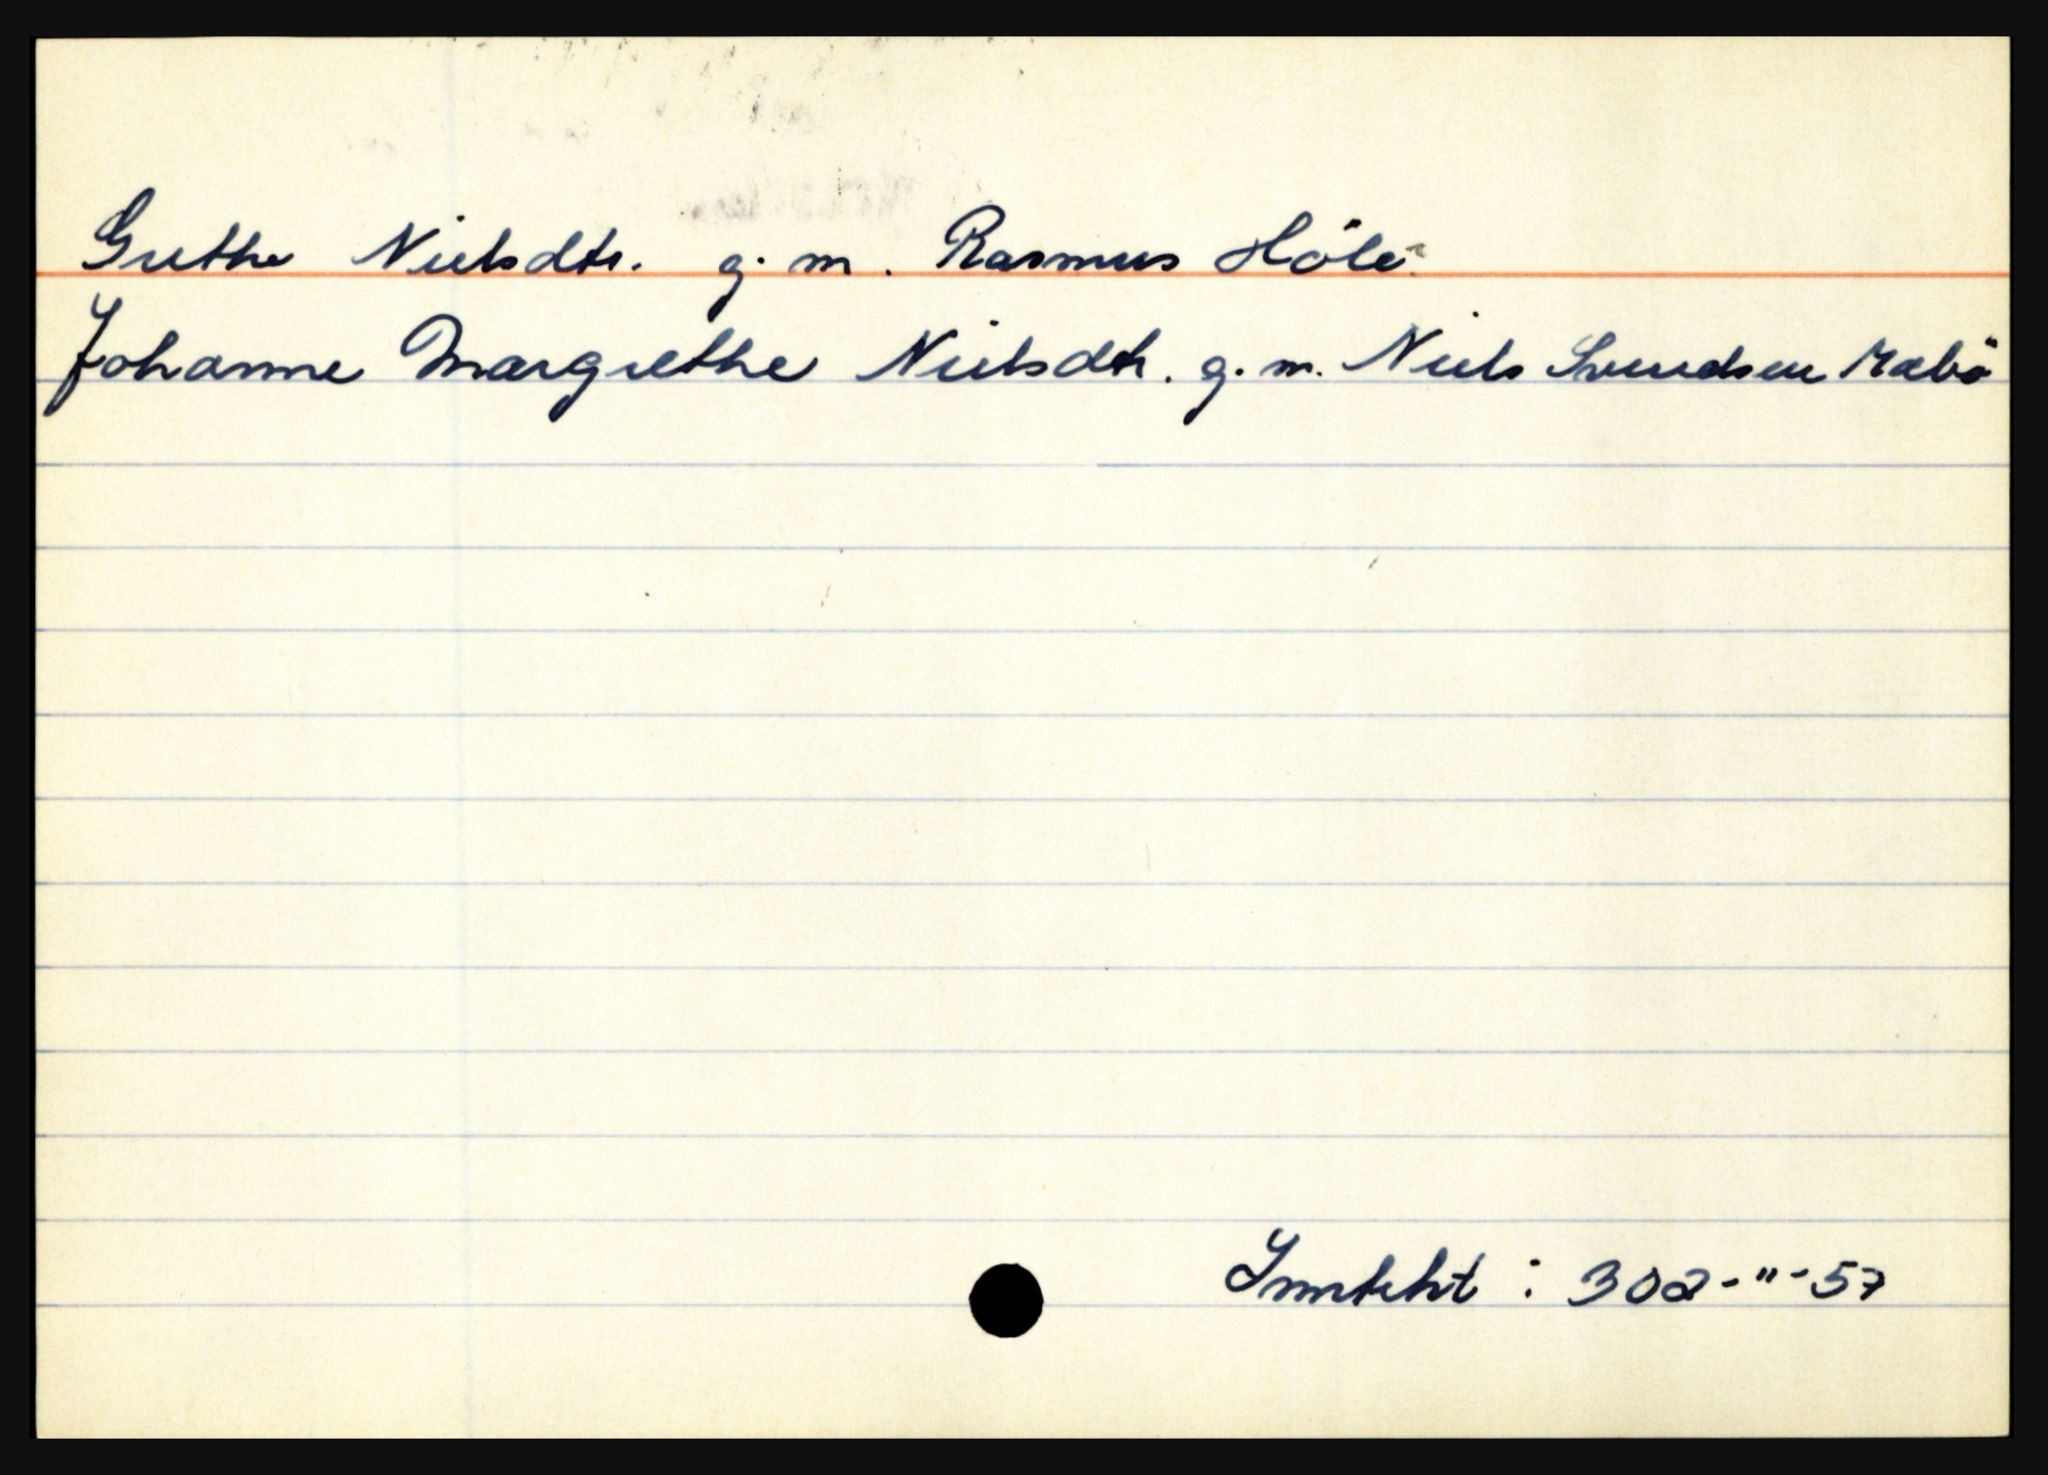 Grethe Nielsdtr. g. m. Rasmus Höle
Johanne Margrethe Nielsdtr. g. m. Niels Svendsen Mabö
Inntekt : 302-"-57